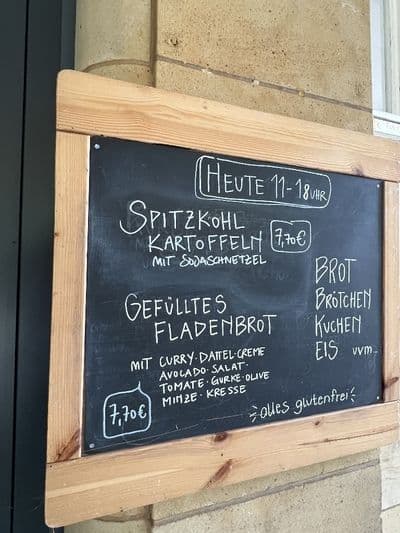 HEUTE 11-18 UHR
SPITZKOHL
KARTOFFELN 7,70€
MIT SOJASCHNETZEL
GEFÜLLTES
FLADENBROT
MIT CURRY-DATTEL-CREME
AVOCADO · SALAT ·
TOMATE · GURKE · OLIVE
MINZE · KRESSE
7,70€
BROT
BRÖTCHEN
KUCHEN
EIS uvm.
alles glutenfrei